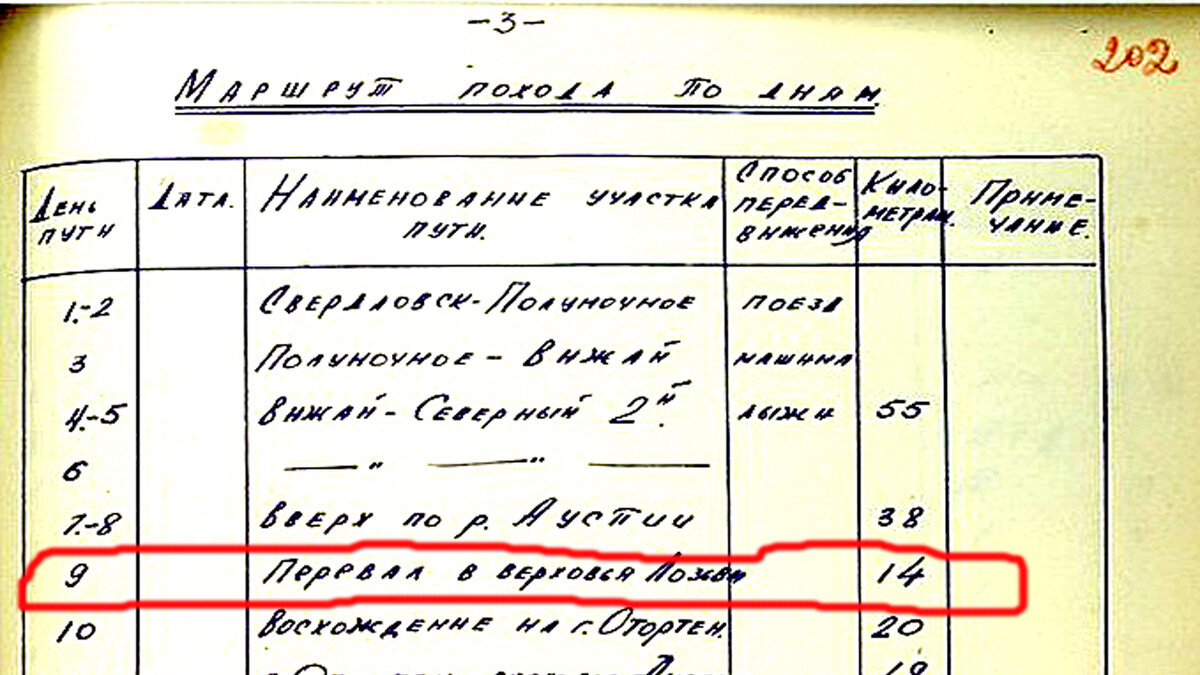 -3-
202
Маршрут похода по дням.
День пути Дата. Наименование участка пути. Способ передвижения Километраж. Примечание.
1.-2 Свердловск-Полуночное поезд
3 Полуночное - Вижай машина
4.-5 Вижай-Северный 2й. лыжи 55
6 — " — " —
7.-8 Вверх по р. Ауспии 38
9 Перевал в верховья Лозьвы 14
10 Восхождение на г. Отортен. 20